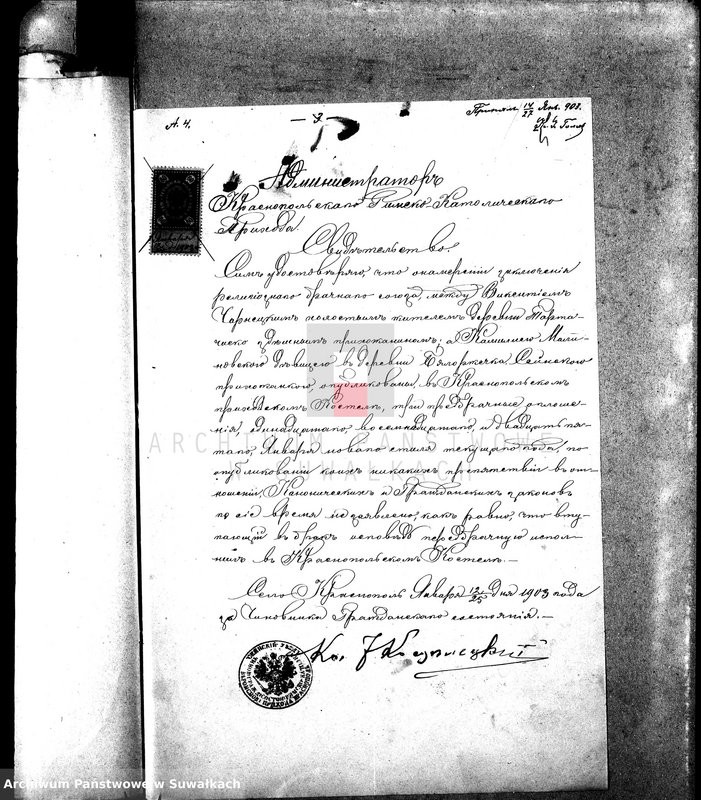 А. 4.
— 3 —
Принял. 14/27 Янв. 903.
Администраторъ
Краснопольскаго Римско Католическаго
Прихода.
Свидѣтельство.
Симъ удостовѣряю, что онамереніи заключенія
религіознаго брачнаго союза, между Викентіемъ
Чарнецкимъ холостымъ жителемъ деревни Тарта-
чиско здѣшнимъ прихожаниномъ; а Камиліею Мали-
новскою дѣвицею въ деревни Бялоржечка, Сейнскою
прихожанкою, опубликованы, въ Краснопольскомъ
приходскомъ Костелѣ, три предбрачные оглаше-
нія, единадцатаго, восемнадцатаго, и двадцатъ пя-
таго, Января новаго стиля текущаго года, по
опубликованіи коихъ никакихъ препятствій въ от-
ношеніи, Каноническихъ и Гражданскихъ законовъ
по сіе время не заявлено, какъ равно, что всту-
пающій въ бракъ исповѣдь передбрачную испол-
нилъ въ Краснопольскомъ Костелѣ. —
Село Краснополь Января 12/25 дня 1903 года
за Чиновника Гражданскаго состоянія. —
Кс.
ARCHIWUM PAŃSTWOWE
W SUWAŁKACH
Archiwum Państwowe w Suwałkach